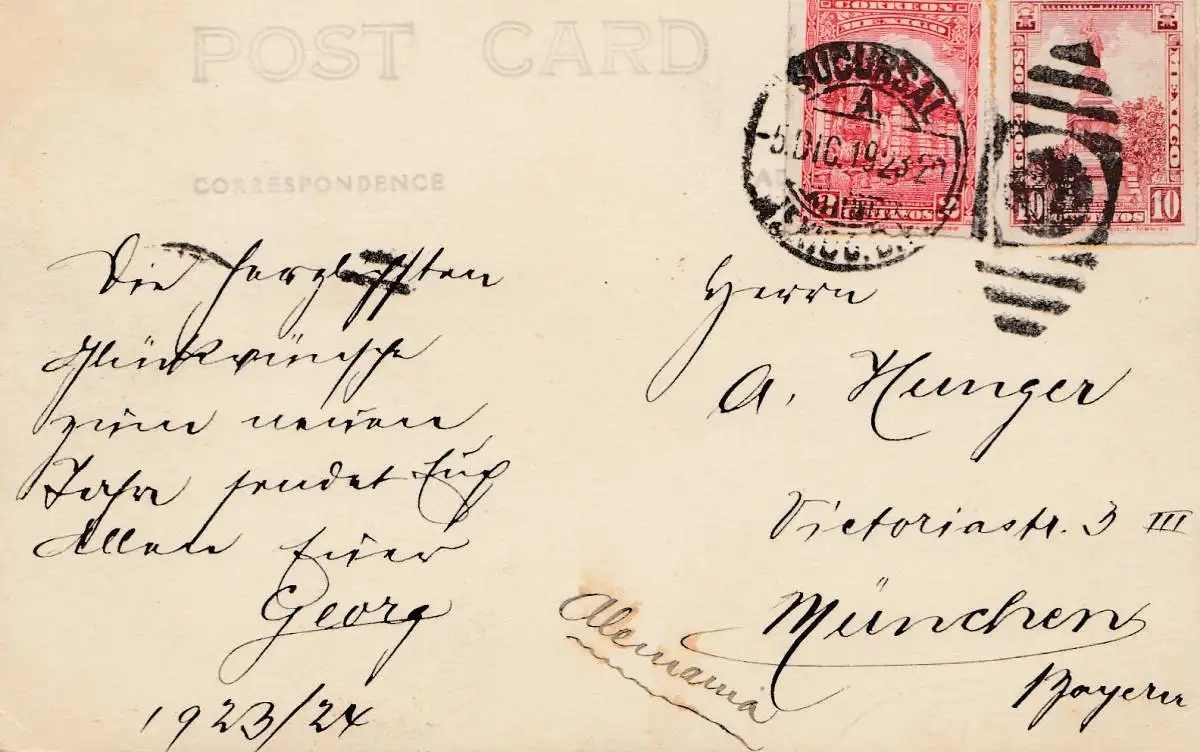 POST CARD
CORRESPONDENCE
CORREOS
MEXICO
CORREOS
MEXICO
10
10
SUCURSAL
A.
5.DIC.1923
Die herzlichsten
Glückwünsche
zum neuen
Jahre sendet Euch
Allen Euer
Georg
1923/24
Herrn
A. Hunger
Victoriastr. 3 III
München
Bayern
Alemania